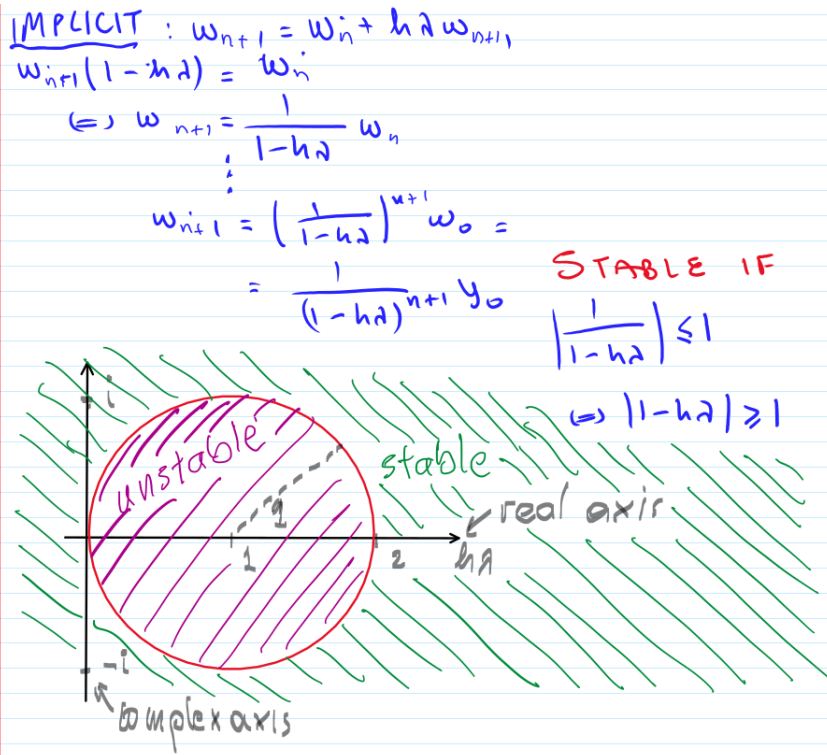 IMPLICIT : w_{n+1} = w_n + hλw_{n+1}
w_{n+1}(1-hλ) = w_n
⟺ w_{n+1} = \frac{1}{1-hλ} w_n
⋮
w_{n+1} = (\frac{1}{1-hλ})^{n+1} w_0 =
= \frac{1}{(1-hλ)^{n+1}} y_0
STABLE IF
|\frac{1}{1-hλ}| ≤ 1
⟺ |1-hλ| ≥ 1
i
unstable
stable
real axis
1
1
2
hλ
-i
complex axis